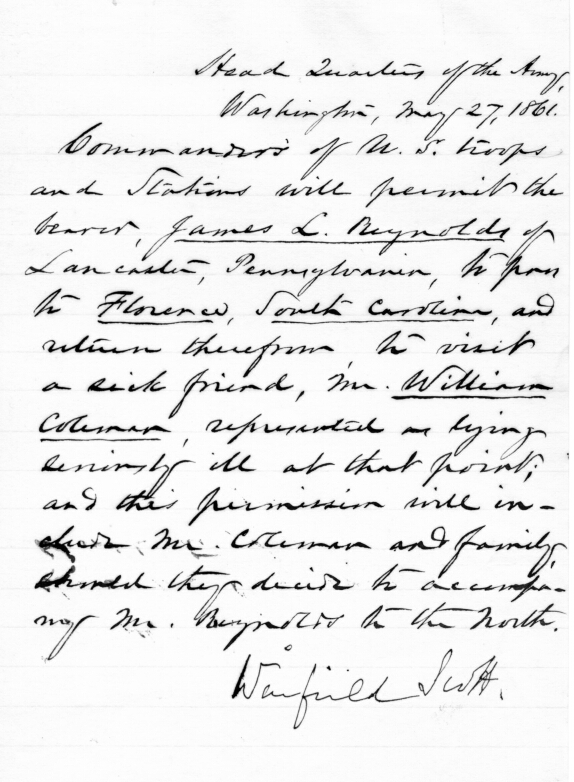 Head Quarters of the Army,
Washington, May 27, 1861.
Commanders of U. S. troops
and Stations will permit the
bearer, James L. Reynolds of
Lancaster, Pennsylvania, to pass
to Florence, South Carolina, and
return therefrom, to visit
a sick friend, Mr. William
Coleman, represented as lying
seriously ill at that point;
and this permission will in-
clude Mr. Coleman and family,
should they decide to accompa-
ny Mr. Reynolds to the North.
Winfield Scott.